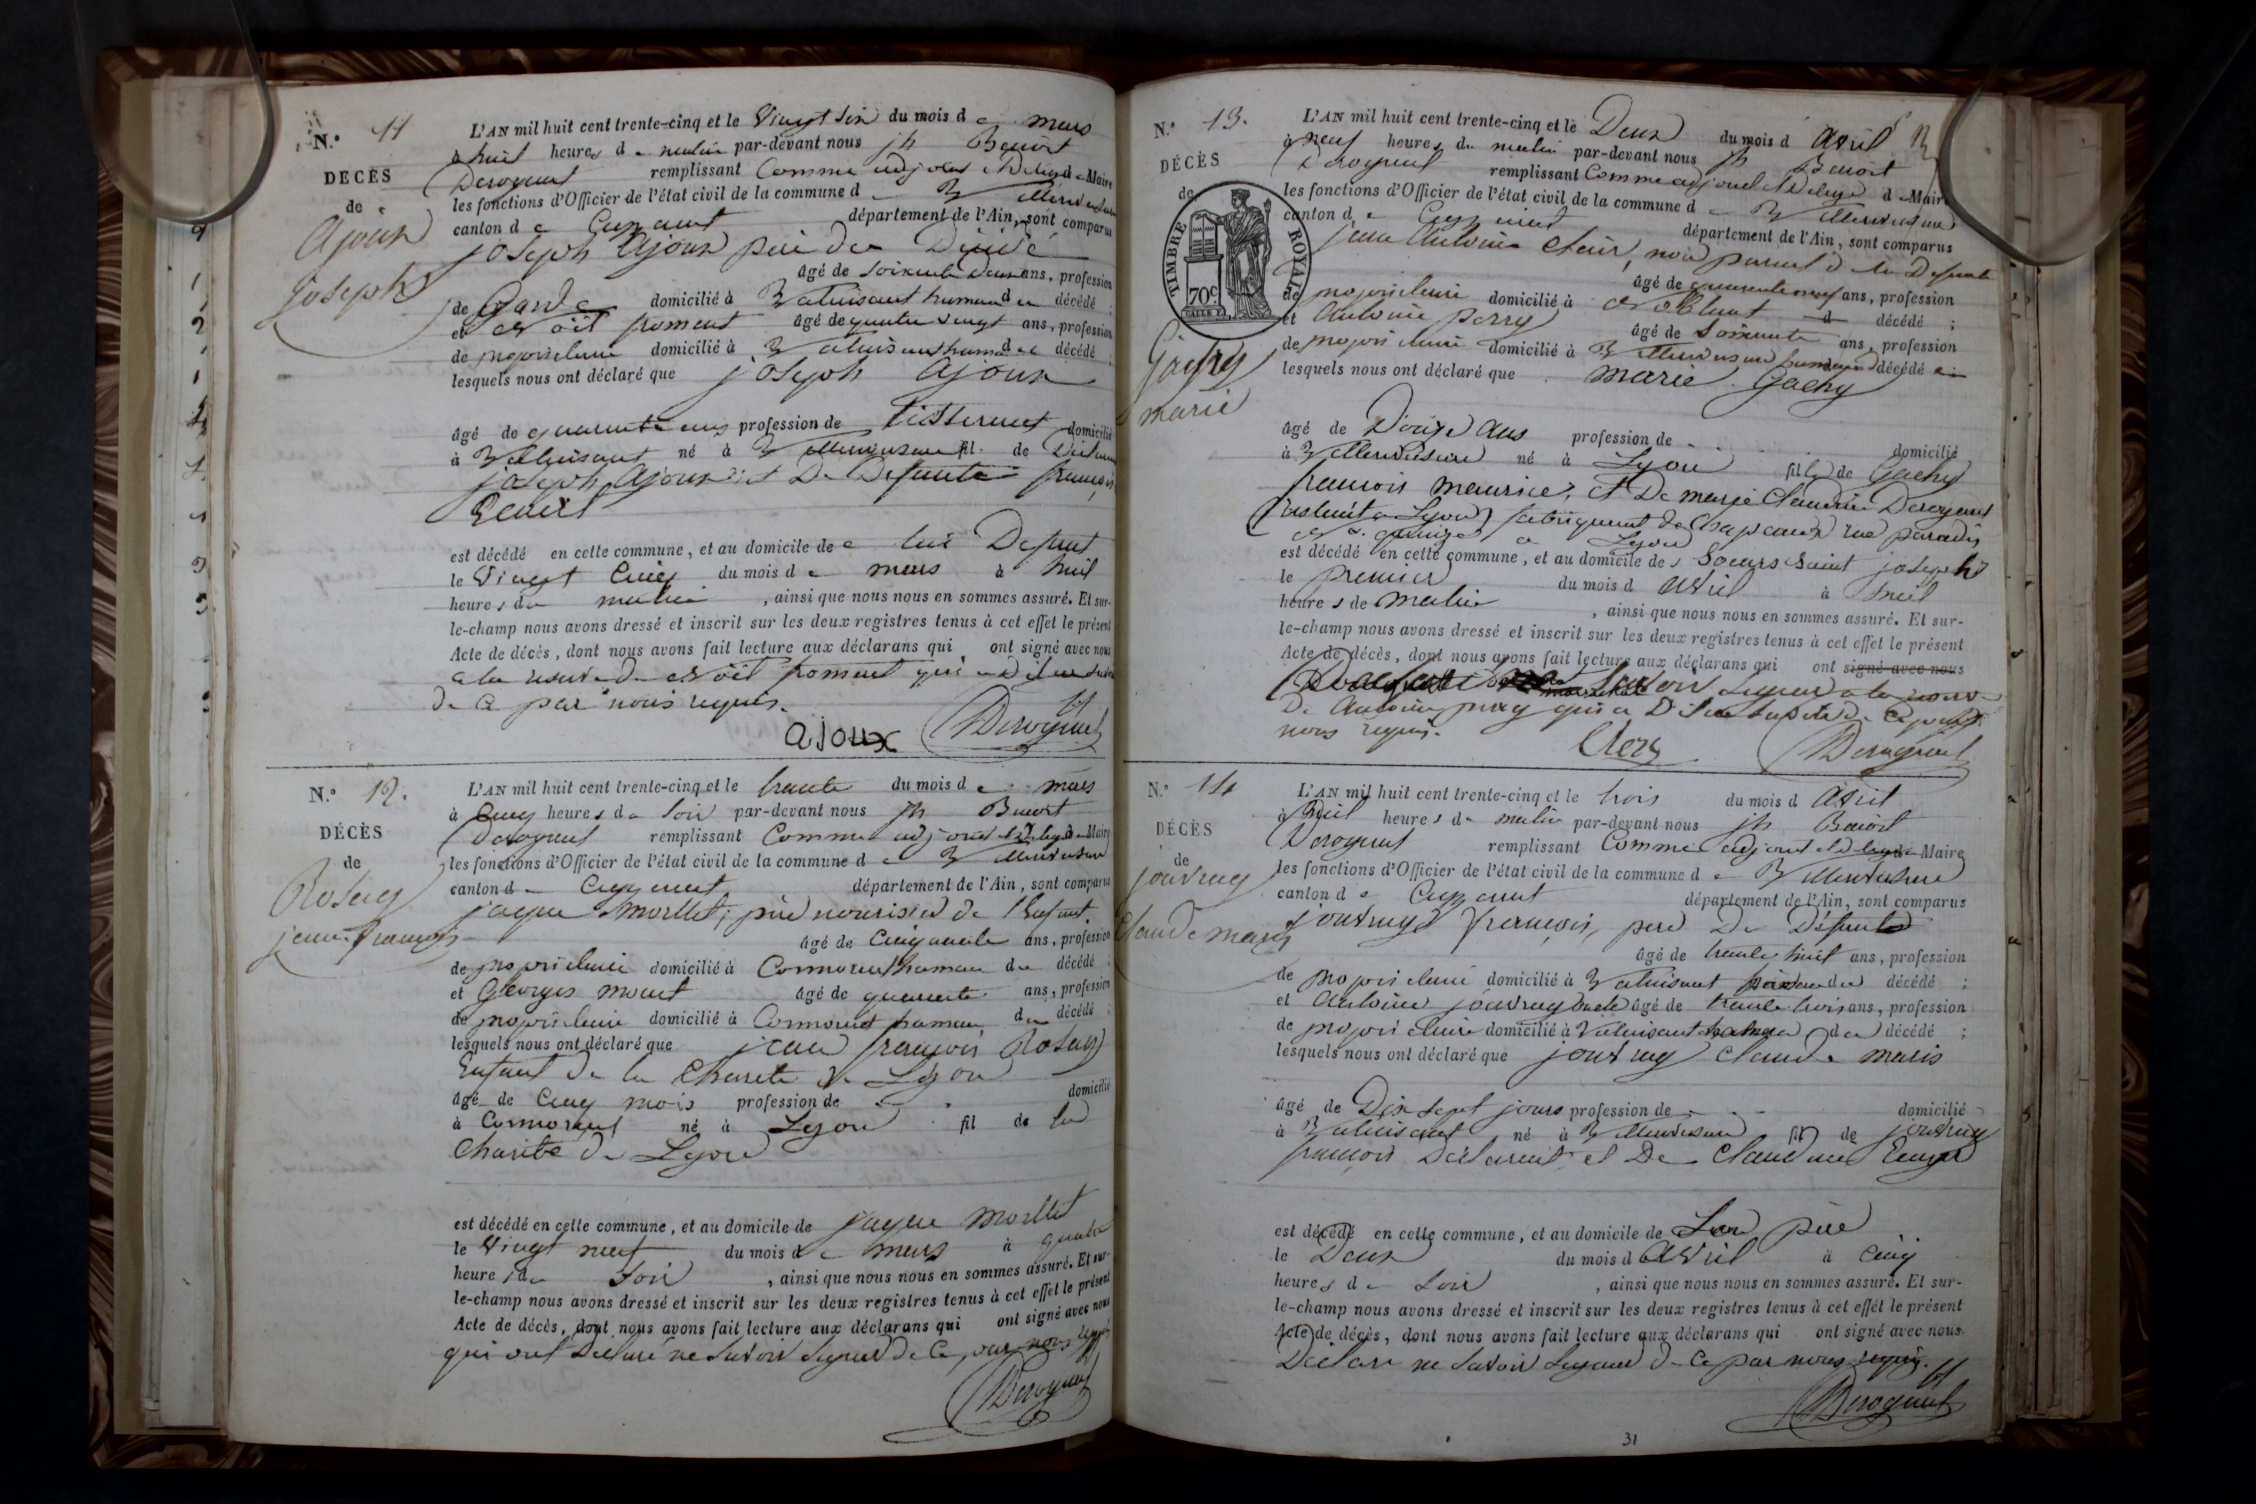 N.° 11
DÉCÈS
de
Ajoux
Joseph
L'AN mil huit cent trente-cinq et le Vingt six du mois de mars
à huit heures du matin par-devant nous jh Benoit
Derognat remplissant Comme adjoint délégué Maire
les fonctions d'Officier de l'état civil de la commune de Villereversure
canton de Ceyzeriat département de l'Ain, sont comparus
joseph Ajoux père du Décédé
âgé de soixante deux ans, profession
de Garde domicilié à Valuisant hameau du décédé ;
et Benoit poncet âgé de quatre vingt ans, profession
de propriétaire domicilié à Valuisant hameau du décédé ;
lesquels nous ont déclaré que joseph Ajoux
âgé de quarante ans profession de Tisserand domicilié
à Valuisant né à Villereversure fil de Déclarant
joseph Ajoux et De Defunte françoise
est décédé en cette commune, et au domicile de lui Defunt
le Vingt Cinq du mois de mars à huit
heures du matin, ainsi que nous nous en sommes assuré. Et sur-
le-champ nous avons dressé et inscrit sur les deux registres tenus à cet effet le présent
Acte de décès, dont nous avons fait lecture aux déclarans qui ont signé avec nous
de ce par nous requis.
ajoux Derognat
N.° 12.
DÉCÈS
de
Rosay
jean françois
L'AN mil huit cent trente-cinq et le trente du mois de mars
à Cinq heures du soir par-devant nous jh Benoit
Derognat remplissant Comme adjoint délégué Maire
les fonctions d'Officier de l'état civil de la commune de Villereversure
canton de Ceyzeriat département de l'Ain, sont comparus
jaque morllet, père nourissier de l'Enfant.
âgé de Cinquante ans, profession
de propriétaire domicilié à Cormorand hameau du décédé ;
et Georges monet âgé de quarante ans, profession
de propriétaire domicilié à Cormorand hameau du décédé ;
lesquels nous ont déclaré que jean françois Rosay
Enfant de la Charité de Lyon
âgé de Cinq mois profession de domicilié
à Cormorand né à Lyon fil de la
Charité de Lyon
est décédé en cette commune, et au domicile de jaque morllet
le Vingt neuf du mois de mars à quatre
heures du soir, ainsi que nous nous en sommes assuré. Et sur-
le-champ nous avons dressé et inscrit sur les deux registres tenus à cet effet le présent
Acte de décès, dont nous avons fait lecture aux déclarans qui ont signé avec nous
qui ont Déclaré ne savoir signer de ce par nous requis
Derognat
N.° 13.
DÉCÈS
de
TIMBRE ROYAL
70c
Gachy
marie
L'AN mil huit cent trente-cinq et le Deux du mois d'Avril
à neuf heures du matin par-devant nous jh Benoit
Derognat remplissant Comme adjoint délégué de Maire
les fonctions d'Officier de l'état civil de la commune de Villereversure
canton de Ceyzeriat département de l'Ain, sont comparus
jean Antoine Clair, non parent de la Defunte
âgé de quarante neuf ans, profession
de propriétaire domicilié à décédé ;
et Antoine perry âgé de soixante ans, profession
de propriétaire domicilié à Villereversure hameau décédé
lesquels nous ont déclaré que marie Gachy
âgé de Douze ans profession de domicilié
à Villereversure né à Lyon fille de Gachy
francois maurice, et De marie Claudine Derognat
fabriquant de Chapeaux rue paradis
Lyon
est décédé en cette commune, et au domicile des Soeurs Saint joseph
le premier du mois d'Avril à huit
heures de matin, ainsi que nous nous en sommes assuré. Et sur-
le-champ nous avons dressé et inscrit sur les deux registres tenus à cet effet le présent
Acte de décès, dont nous avons fait lecture aux déclarans qui ont signé avec nous
nous requis.
Clerc Derognat
N.° 14
DÉCÈS
de
jouvray
Claude maris
L'AN mil huit cent trente-cinq et le trois du mois d'Avril
à huit heures du matin par-devant nous jh Benoit
Derognat remplissant Comme adjoint délégué Maire
les fonctions d'Officier de l'état civil de la commune de Villereversure
canton de Ceyzeriat département de l'Ain, sont comparus
jouvray françois, pere De Défunt
âgé de trente huit ans, profession
de propriétaire domicilié à Valuisant hameau du décédé ;
et Antoine jouvray oncle âgé de trente trois ans, profession
de propriétaire domicilié à Valuisant hameau du décédé ;
lesquels nous ont déclaré que jouvray Claude maris
âgé de Dix sept jours profession de domicilié
à Valuisant né à Villereversure fil de jouvray
francois Déclarant et De Claudine
est décédé en cette commune, et au domicile de Son père
le Deux du mois d'Avril à cinq
heures du soir, ainsi que nous nous en sommes assuré. Et sur-
le-champ nous avons dressé et inscrit sur les deux registres tenus à cet effet le présent
Acte de décès, dont nous avons fait lecture aux déclarans qui ont signé avec nous
Déclaré ne savoir signer de ce par nous requis.
Derognat
31